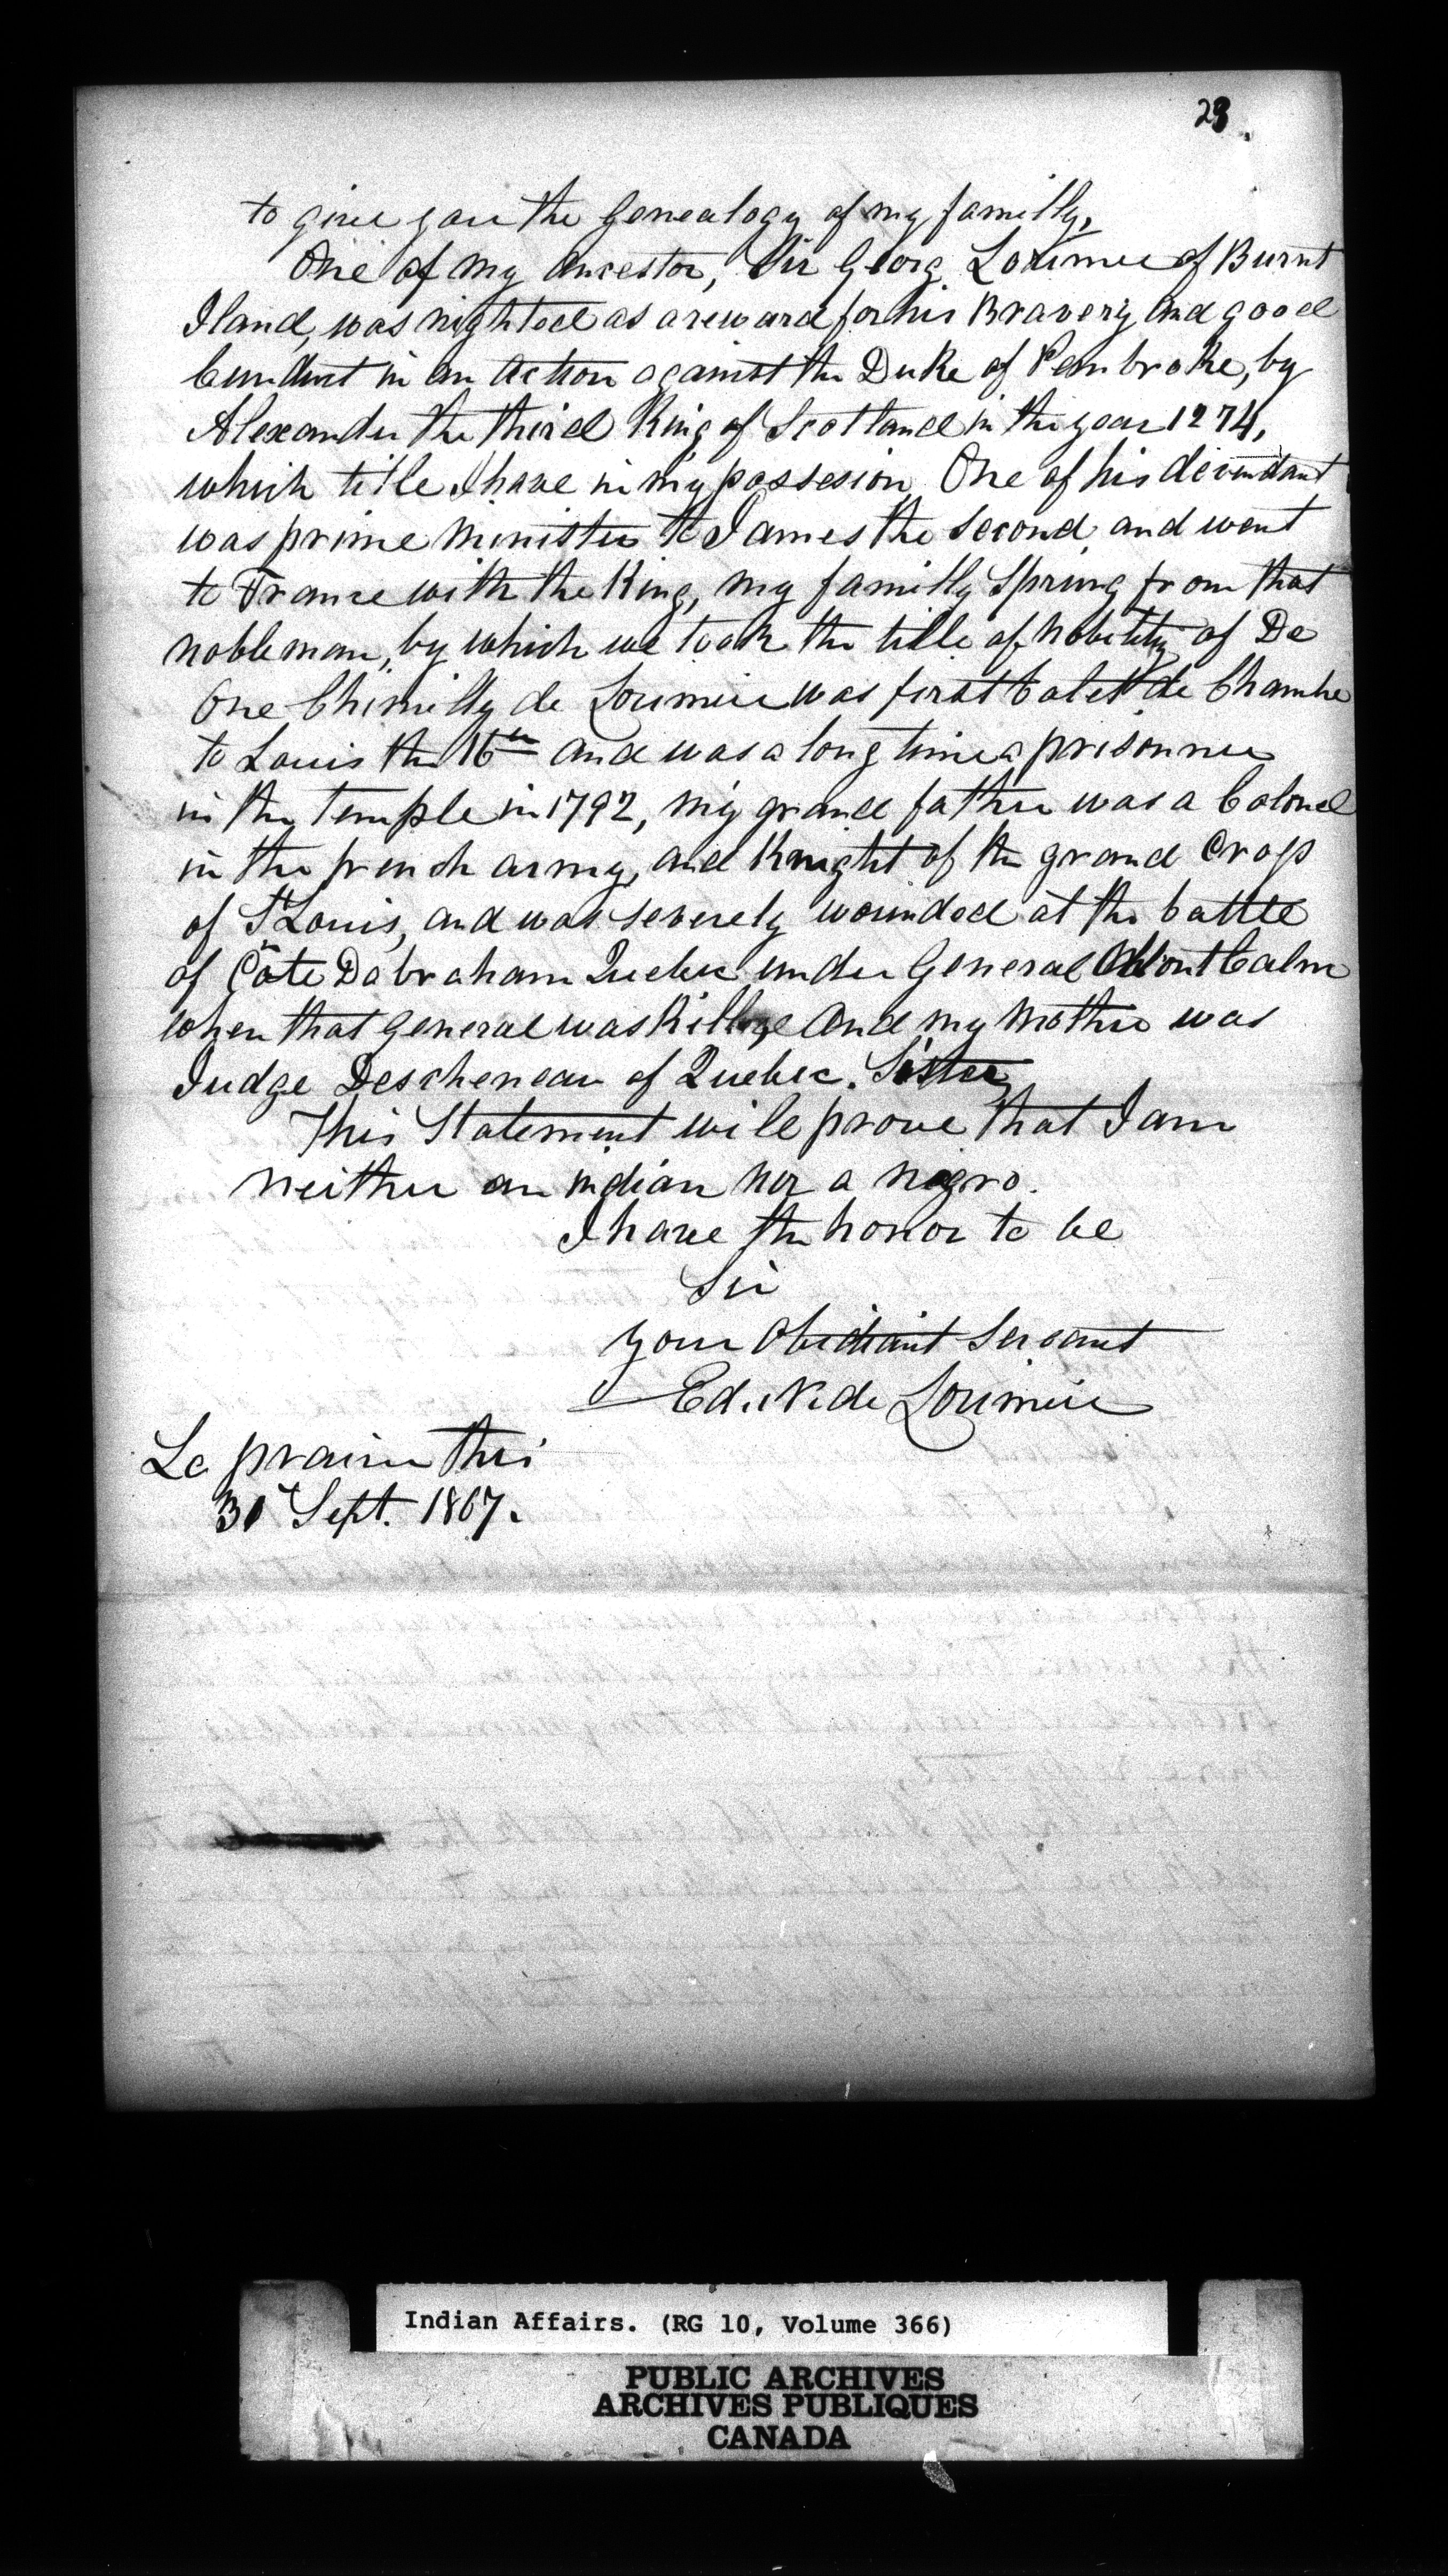 23
to give you the Genealogy of my familly,
One of my Ancestor, Sir Georg Lorimer of Burnt
Iland, was nighted as a reward for his Bravery and good
Cunduct in an Action against the Duke of Pembroke, by
Alexander the third King of Scotland in the year 1274,
which title I have in my possesion One of his decendant
was prime Minister to James the Second, and went
to France with the King, my familly Spring from that
nobleman, by which we took the title of Nobility of De
One Chimilly de Lorimier was first Valet de Chambre
to Louis the 16th and was a long time a prisonner
in the Temple in 1792, my grand father was a Colonel
in the french army, and Knight of the grand Cross
of St Louis, and was severely wounded at the battle
of Côte Dabraham Quebec under General Mont Calm
when that General was Killed and my Mother was
Judge Descheneau of Quebec. Sister
This Statement will prove that I am
neither an indian nor a nigro.
I have the honor to be
Sir
your Obediant Servant
Ed. N. de Lorimier
La prairie this
30 Sept. 1867.
Indian Affairs. (RG 10, Volume 366)
PUBLIC ARCHIVES
ARCHIVES PUBLIQUES
CANADA